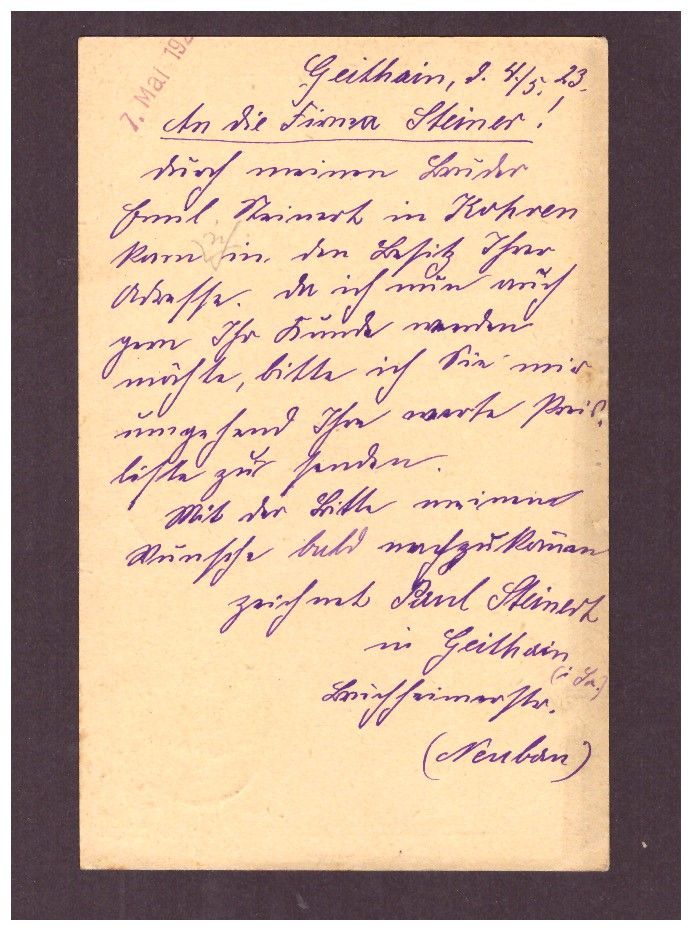 7. Mai 192
Geithain, d. 4./5. 23.
An die Firma Steiner!
Durch meinen Bruder
Emil Steinert in Kohren
kam in den Besitz Ihrer
Adresse. Da ich nun auch
gern Ihr Kunde werden
möchte, bitte ich Sie mir
umgehend Ihre werte Preis-
liste zu senden.
Mit der Bitte meinem
Wunsche bald nachzukommen
zeichnet Paul Steinert
in Geithain
(i Sa.)
Bruchheimerstr.
(Neubau)